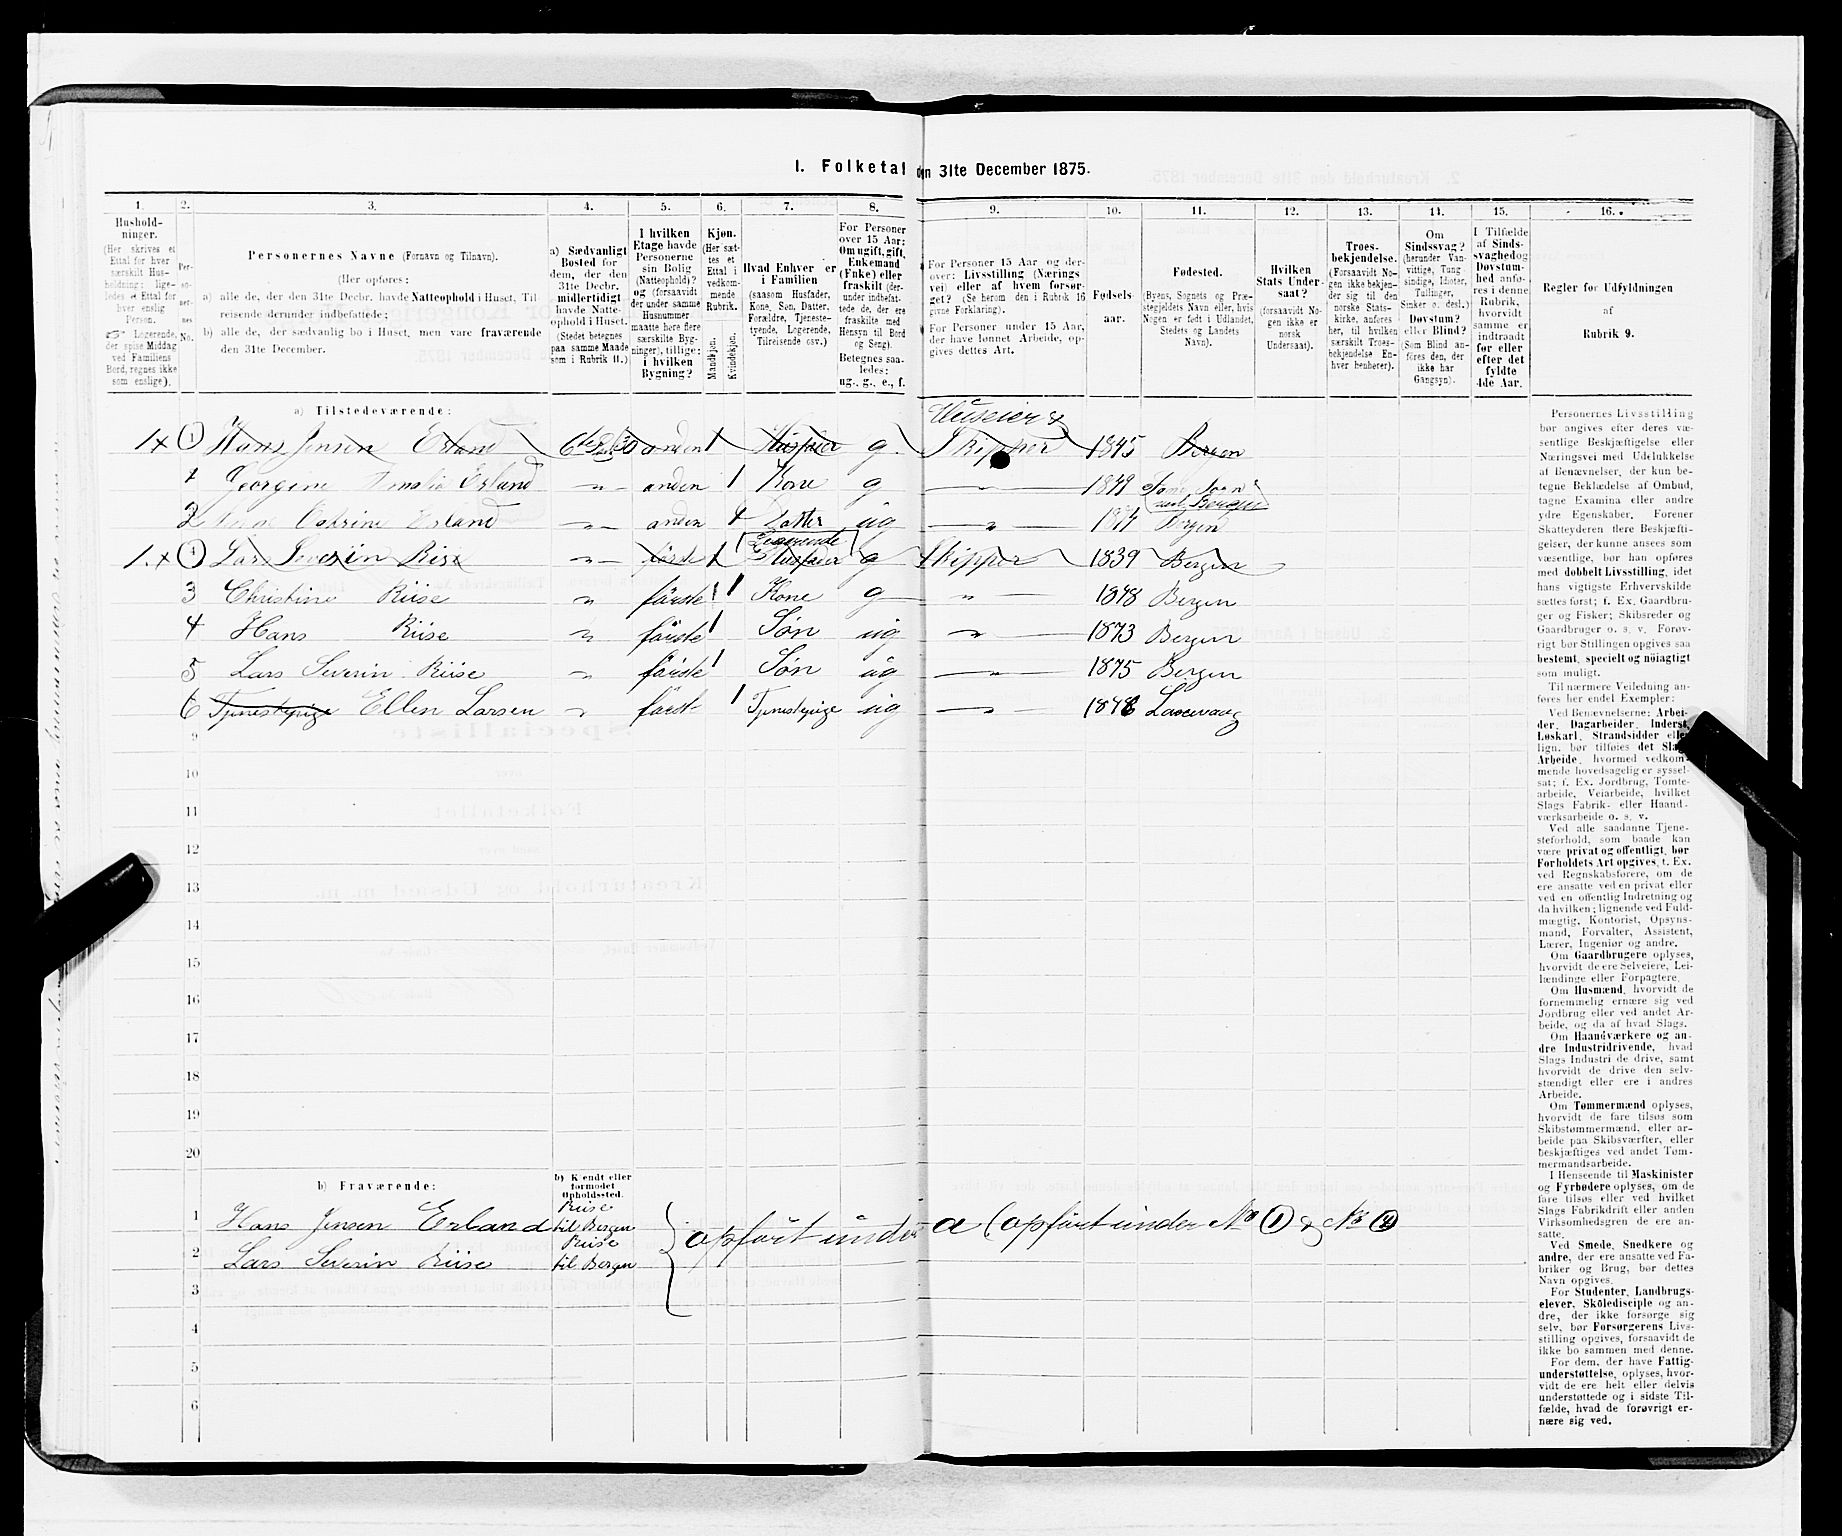 I. Folketal den 31te December 1875.
1. 2. 3. 4. 5. 6. 7. 8. 9. 10. 11. 12. 13. 14. 15. 16.
Hushold-
ninger.
(Her skrives et
Ettal for hver
særskilt Hus-
holdning; lige-
ledes et Ettal for
hver enslig
Person.
Logerende,
der spise Middag
ved Familiens
Bord, regnes ikke
som enslige).
Per-
so-
ner-
nes
No.
Personernes Navne (Fornavn og Tilnavn).
(Her opføres:
a) alle de, der den 31te Decbr. havde Natteophold i Huset, Til-
reisende derunder indbefattede;
b) alle de, der sædvanlig bo i Huset, men vare fraværende
den 31te December.
a) Sædvanligt
Bosted for
dem, der den
31te Decbr.
midlertidigt
havde Natte-
ophold i Huset.
(Stedet betegnes
paa samme Maade
som i Rubrik 11.)
I hvilken
Etage havde
Personerne
sin Bolig
(Natteophold)?
og (forsaavidt
der under samme
Husnummer
maatte høre flere
særskilte Byg-
ninger), tillige:
i hvilken
Bygning?
Kjøn.
(Her sæt-
tes et
Ettal i
vedkom-
mende
Rubrik.
Mandkjøn.
Kvindekjøn.
Hvad Enhver er
i Familien
(saasom Husfader,
Kone, Søn, Datter,
Forældre, Tjeneste-
tyende, Logerende,
Tilreisende osv.)
For Personer
over 15 Aar:
Om ugift, gift,
Enkemand
(Enke) eller
fraskilt (der-
under indbefat-
tede de, der ere
fraskilte med
Hensyn til Bord
og Seng).
Betegnes saa-
ledes:
ug., g., e., f.
For Personer 15 Aar og der-
over: Livsstilling (Nærings
vei) eller af hvem forsør-
get? (Se herom den i Rubrik 16
givne Forklaring).
For Personer under 15 Aar,
der have lønnet Arbeide, op-
gives dettes Art.
Fødsels-
aar.
Fødested.
(Byens, Sognets og Præ-
stegjeldets Navn eller, hvis
Nogen er født i Udlandet,
Stedets og Landets
Navn).
Hvilken
Stats Under-
saat?
(forsaavidt No-
gen ikke er
norsk
Undersaat).
Troes-
bekjendelse.
(Forsaavidt No-
gen ikke bekjen-
der sig til den
norske Stats-
kirke, anføres
her, til hvilken
særskilt Troes-
bekjendelse En-
hver henhører).
Om
Sindssvag?
(herunder Van-
vittige, Tung-
sindige, Idioter,
Tullinger,
Sinker o. desl.)
Døvstum?
eller Blind?
(Som Blind an-
føres den, der
ikke har
Gangsyn).
I Tilfælde
af Sinds-
svaghed og
Døvstum-
hed anfø-
res i denne
Rubrik,
hvorvidt
samme er
indtraadt
før eller
efter det
fyldte
4de Aar.
Regler for Udfyldningen
af
Rubrik 9.
a) Tilstedeværende:
Huseier &
1 x 1 Hans Jensen Erland anden 1 Husfader g Skipper 1845 Bergen
Georgine Amalia Erland anden 1 Kone g 1849
2 Catrine Erland anden Datter ug Bergen
Logerende
1. x Lars Severin Riise første 1 Husfader g Skipper 1839 Bergen
3 Christine Riise første 1 Kone g 1848 Bergen
4 Hans Riise første 1 Søn ug 1873 Bergen
5 Lars Severin Riise første 1 Søn ug 1875 Bergen
6 Tjenestepige Ellen Larsen først 1 Tjenestepige ug Laxevaag
9
10
11
12
13
14
15
16
17
18
19
20
b) Fraværende:
b) Kjendt eller
formodet
Opholdssted.
1 Hans Jensen Erland Riise til Bergen
opført under a (opført under No 1 & No 4
2 Lars Severin Riise Riise til Bergen
3
4
5
6
Personernes Livsstilling
bør angives efter deres væ-
sentlige Beskjæftigelse eller
Næringsvei med Udelukkelse
af Benævnelser, der kun be-
tegne Beklædelse af Ombud,
tagne Examina eller andre
ydre Egenskaber. Forener
Skatteyderen flere Beskjæfti-
gelser, der kunne ansees som
væsentlige, bør han opføres
med dobbelt Livsstilling, idet
hans vigtigste Erhvervskilde
sættes først; f. Ex. Gaardbru-
ger og Fisker; Skibsreder og
Gaardbruger o. s. v. Forøv-
rigt bør Stillingen opgives saa
bestemt, specielt og nöiagtigt
som muligt.
Til nærmere Veiledning an-
føres her endel Exempler:
Ved Benævnelserne: Arbei-
der, Dagarbeider, Inderst,
Løskarl, Strandsidder eller
lign. bør tilføies det Slags
Arbeide, hvormed vedkom-
mende hovedsagelig er syssel-
sat; f. Ex. Jordbrug, Tomte-
arbeide, Veiarbeide, hvilket
Slags Fabrik- eller Haand-
værksarbeide o. s. v.
Ved alle saadanne Tjene-
steforhold, som baade kan
være privat og offentligt, bør
Forholdets Art opgives, t. Ex.
ved Regnskabsførere, om de
ere ansatte ved en privat eller
ved en offentlig Indretning og
da hvilken; lignende ved Fuld-
mægtig, Kontorist, Opsyns-
mand, Forvalter, Assistent,
Lærer, Ingeniør og andre.
Om Gaardbrugere oplyses,
hvorvidt de ere Selveiere, Lei-
lændinge eller Forpagtere.
Om Husmænd, hvorvidt de
fornemmelig ernære sig ved
Jordbrug eller ved andet Ar-
beide, og da af hvad Slags.
Om Haandværkere og an-
dre Industridrivende, hvad
Slags Industri de drive, samt
hvorvidt de drive den selv-
stændigt eller ere i andres
Arbeide.
Om Tømmermænd oplyses,
hvorvidt de fare tilsøs som
Skibstømmermænd, eller ar-
beide paa Skibsværfter, eller
beskjæftiges ved andet Tøm-
mermandsarbeide.
I Henseende til Maskinister
og Fyrbødere oplyses, om de
fare tilsøs eller ved hvilket
Slags Fabrikdrift eller anden
Virksomhedsgren de ere an-
satte.
Ved Smede, Snedkere og
andre, der ere ansatte ved Fa-
briker og Brug, bør dettes
Navn opgives.
For Studenter, Landbrugs-
elever, Skoledisciple og an-
dre, der ikke forsørge sig
selv, bør Forsørgerens Livs-
stilling opgives, forsaavidt de
ikke bo sammen med denne.
For dem, der have Fattig-
understøttelse, oplyses, hvor-
vidt de ere helt eller delvis
understøttede og i sidste Til-
fælde, hvad de forøvrigt er-
nære sig ved.